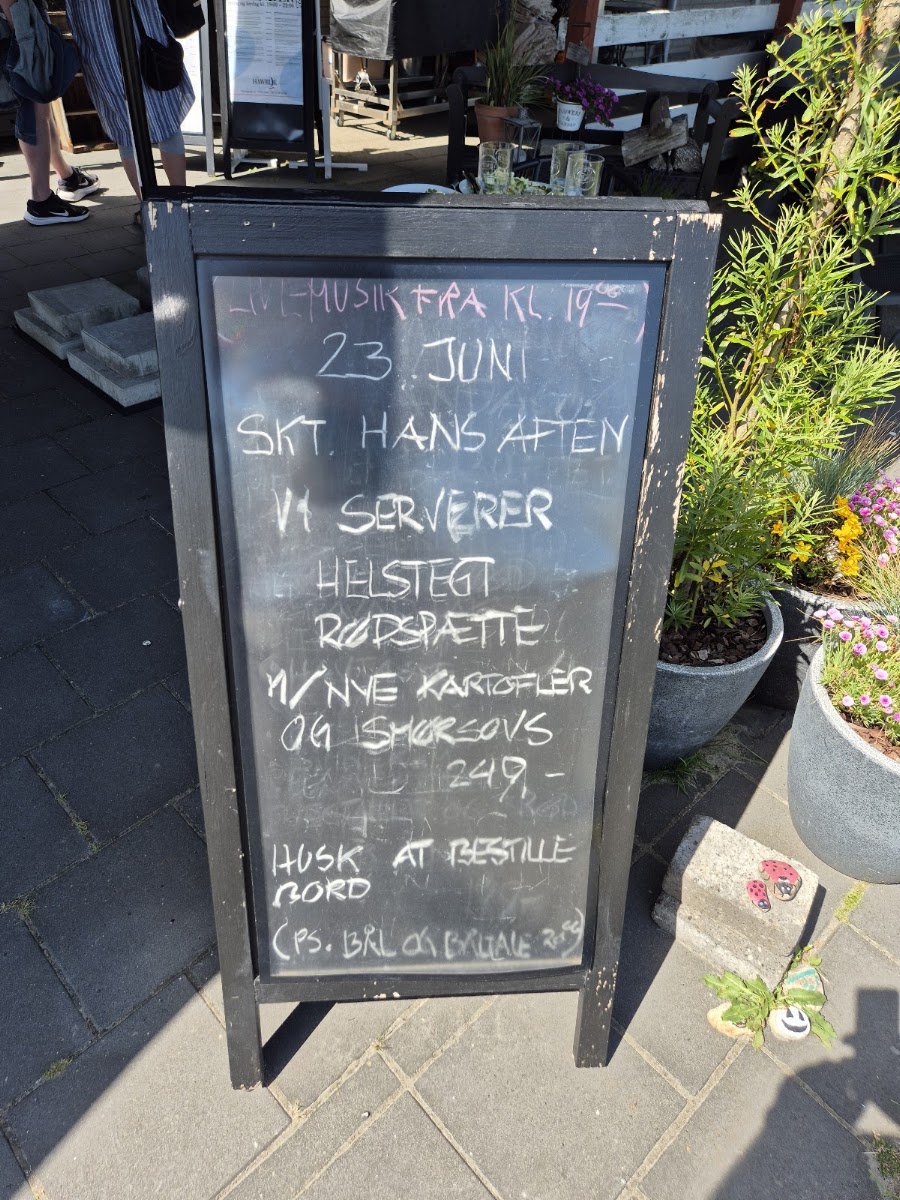 LIVE MUSIK FRA KL. 19⁰⁰
23. JUNI
SKT. HANS AFTEN
VI SERVERER
HELSTEGT
RØDSPÆTTE
M/NYE KARTOFLER
OG SMØRSOVS
249,-
HUSK AT BESTILLE
BORD
(PS. BÅL OG BÅLTALE